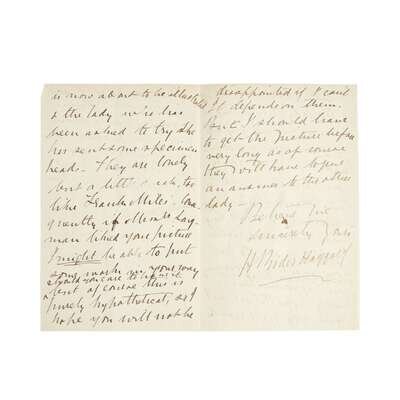 is now about to be illustrated
& the lady who has
been asked to try she
has sent some specimen
heads. They are lovely
but a little too
like Consequently
if Messrs Longman
liked your picture
I might be able to put
some work in your way
should you care to
of course this is
purely hypothetical, as I
hope you will not be
disappointed if I can't
It depends on them.
But I should have
to get the picture before
very long as of course
they will have to give
an answer to the other
lady –
Believe me
sincerely yours
H Rider Haggard